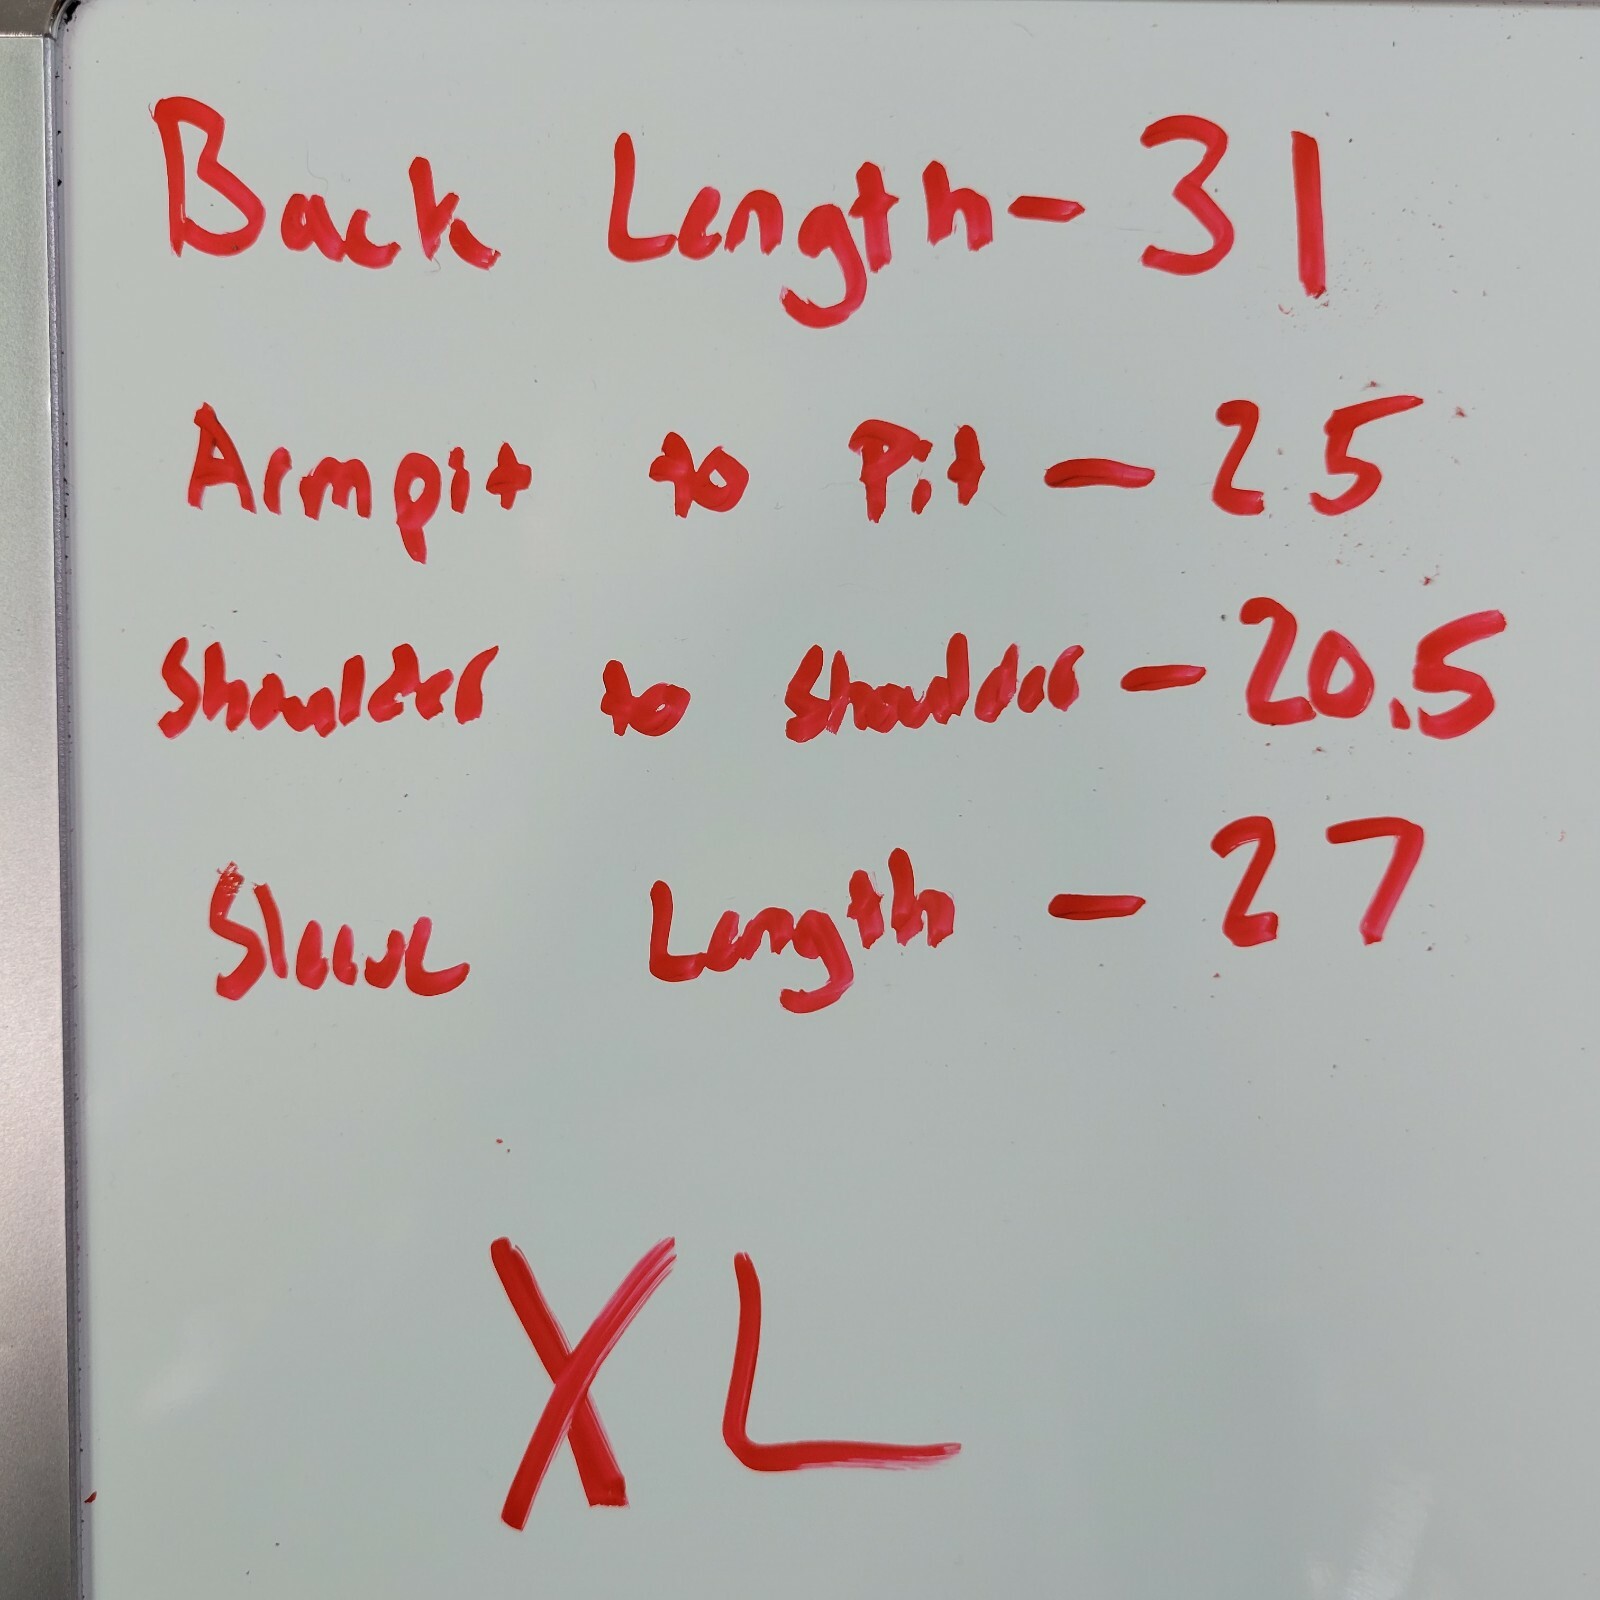 Back Length - 31
Armpit to Pit - 25
Shoulder to Shoulder - 20.5
Sleeve Length - 27
XL